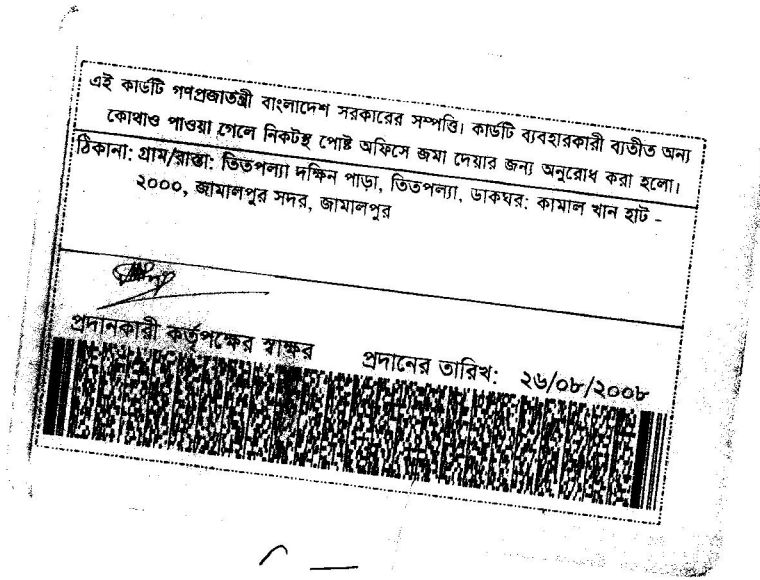 এই কার্ডটি গণপ্রজাতন্ত্রী বাংলাদেশ সরকারের সম্পত্তি। কার্ডটি ব্যবহারকারী ব্যতীত অন্য
কোথাও পাওয়া গেলে নিকটস্থ পোষ্ট অফিসে জমা দেয়ার জন্য অনুরোধ করা হলো।
ঠিকানা: গ্রাম/রাস্তা: তিতপল্যা দক্ষিন পাড়া, তিতপল্যা, ডাকঘর: কামাল খান হাট -
২০০০, জামালপুর সদর, জামালপুর
প্রদানকারী কর্তৃপক্ষের স্বাক্ষর প্রদানের তারিখ: ২৬/০৮/২০০৮